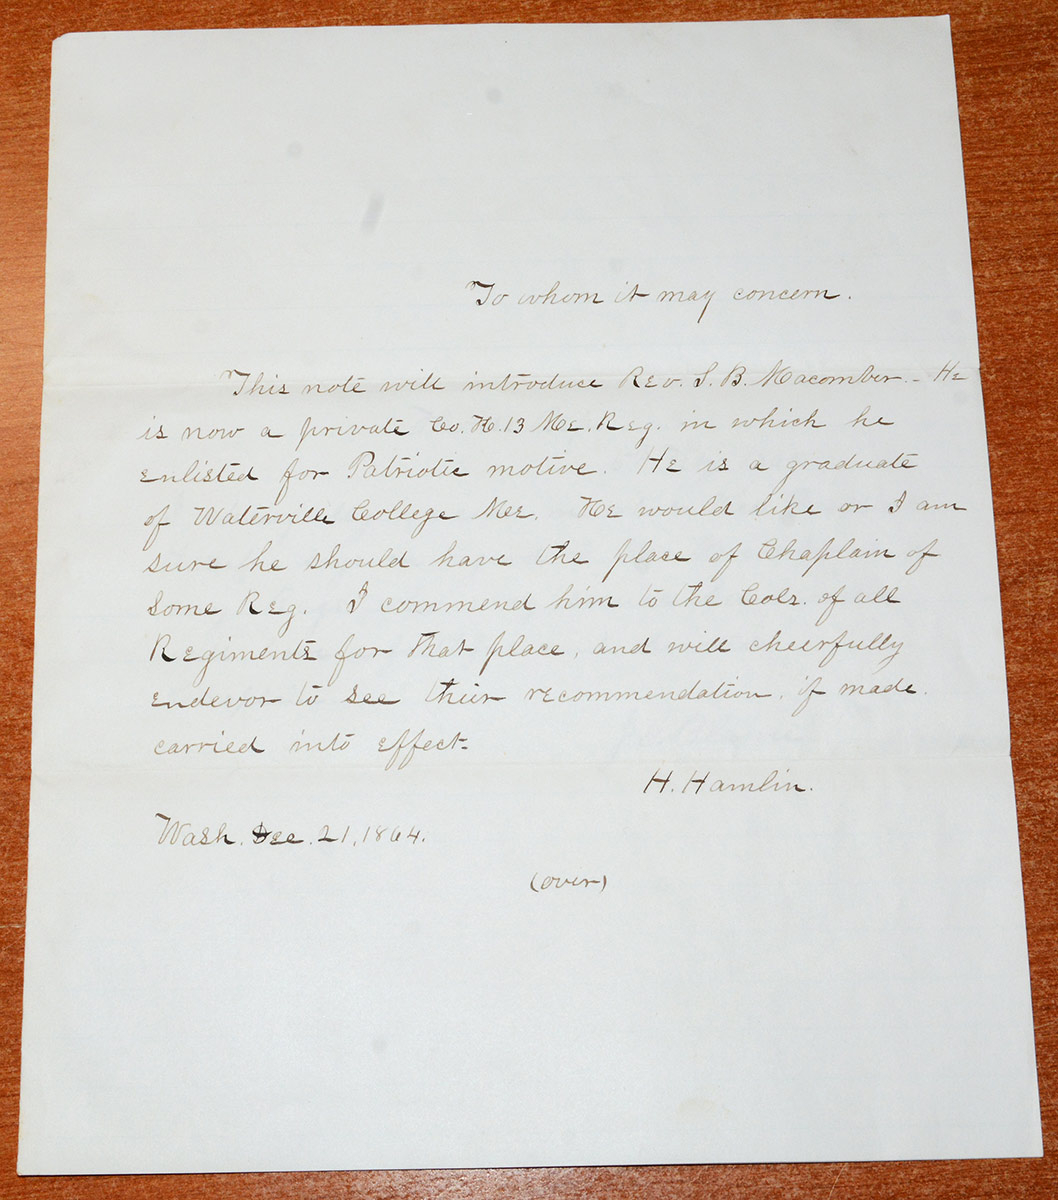 To whom it may concern.
This note will introduce Rev. S. B. Macomber. - He
is now a private Co. H. 13 Me. Reg. in which he
enlisted for Patriotic motive. He is a graduate
of Waterville College Me. He would like or I am
sure he should have the place of Chaplain of
Some Reg. I commend him to the Cols. of all
Regiments for that place, and will cheerfully
endevor to see their recommendation, if made,
carried into effect.
H. Hamlin.
Wash. Dec. 21, 1864.
(over)